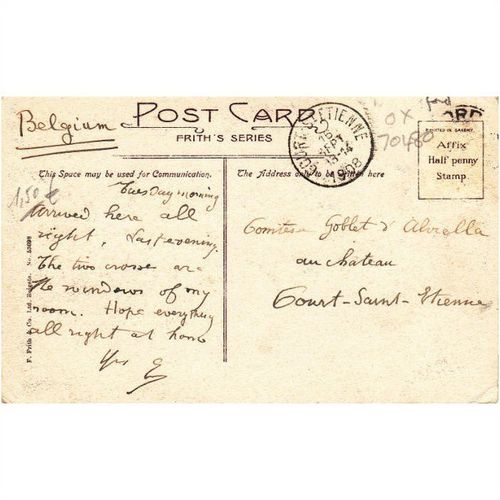 Belgium
POST CARD
FRITH'S SERIES
ford
OX
70480
PRINTED IN SAXONY.
Affix
Half penny
Stamp.
COURT-ST-ETIENNE
20 SEPT
13-14
1908
This Space may be used for Communication.
The Address only to be written here
1,50
Tuesday morning
Arrived here all
right, Last evening.
The two crosses are
the windows of my
room. Hope everything
all right at home
Yrs E
Comtesse Goblet d'Alviella
au chateau
Court-Saint-Etienne
F. Frith & Co. Ltd. Reigate. No.